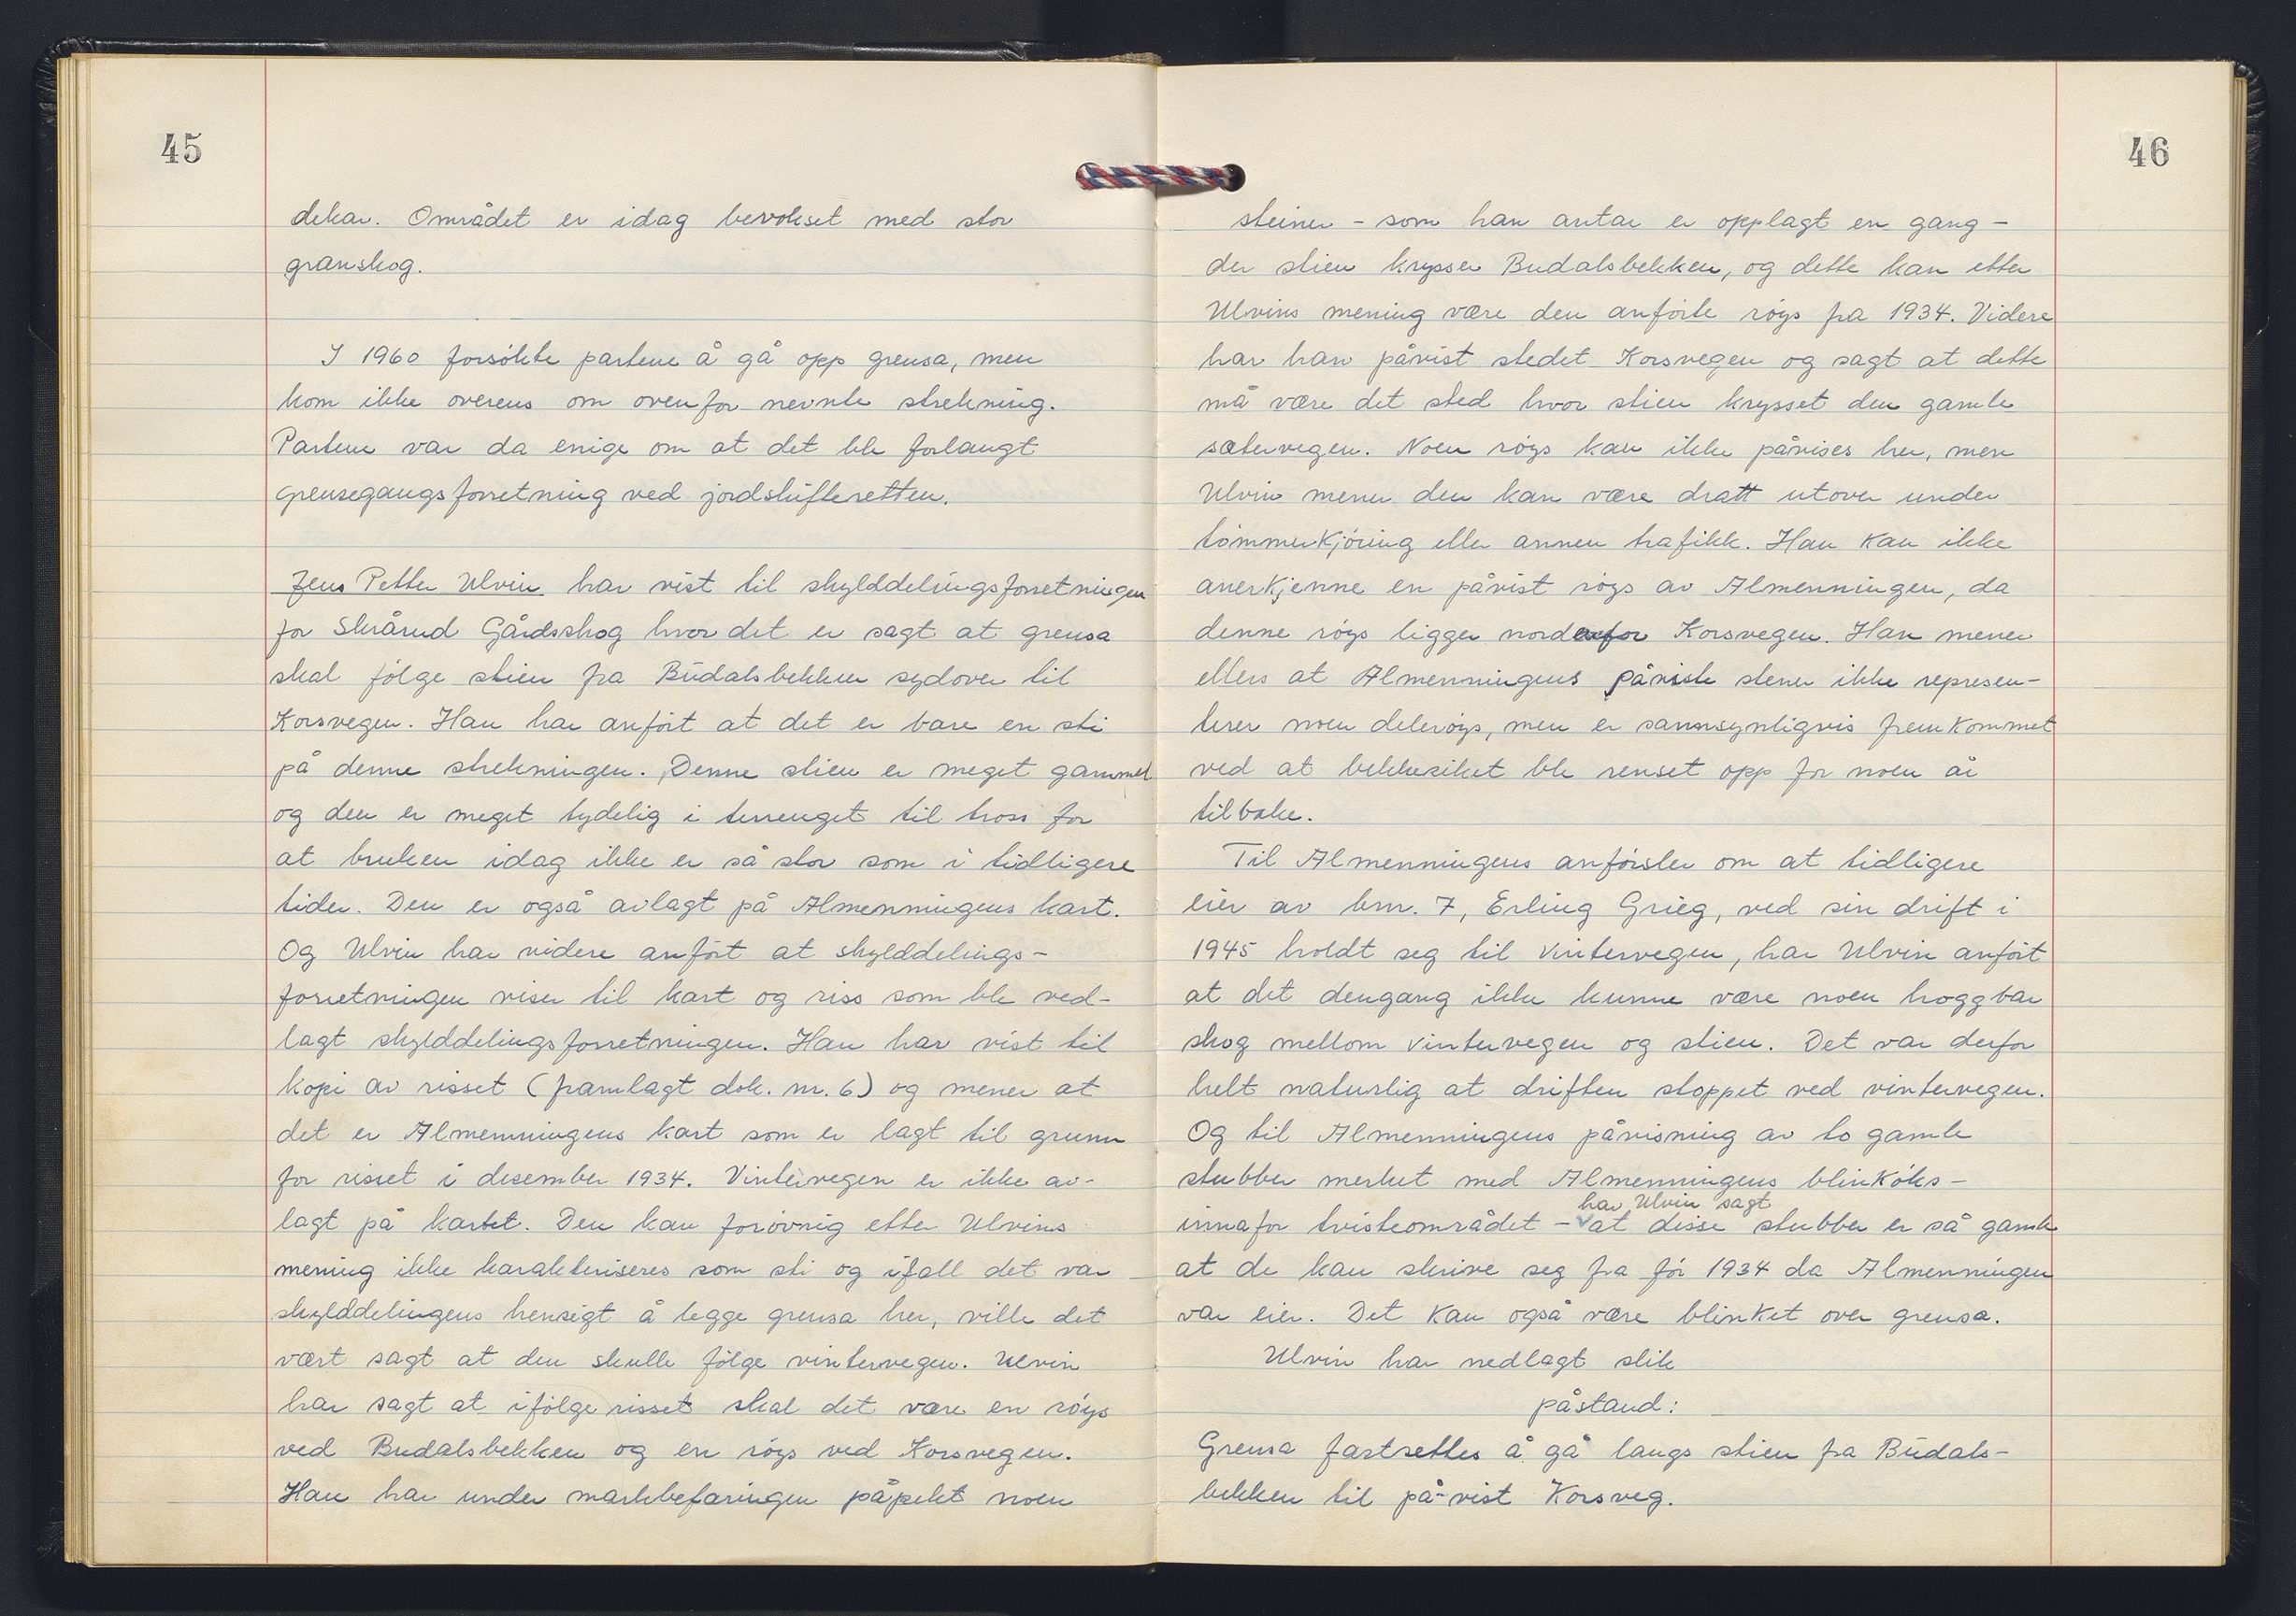 45
dekar. Området er idag bevokset med stor
granskog.
I 1960 forsökte partene å gå opp grensa, men
kom ikke overens om ovenfor nevnte strekning.
Partene var da enige om at det ble forlangt
grensegangsforretning ved jordskifteretten.
Jens Petter Ulvin har vist til skylddelingsforretningen
for Skrårud Gårdsskog hvor det er sagt at grensa
skal fölge stien fra Budalsbekken sydover til
Korsvegen. Han har anfört at det er bare en sti
på denne strekningen. Denne stien er meget gammel
og den er meget tydelig i terrenget til tross for
at bruken idag ikke er så stor som i tidligere
tider. Den er også avlagt på Almenningens kart.
Og Ulvin har videre anfört at skylddelings-
forretningen viser til kart og riss som ble ved-
lagt skylddelingsforretningen. Han har vist til
kopi av risset (framlagt dok. nr. 6) og mener at
det er Almenningens kart som er lagt til grunn
for risset i desember 1934. Vintervegen er ikke av-
lagt på kartet. Den kan forövrig etter Ulvins
mening ikke karakteriseres som sti og ifall det var
skylddelingens hensigt å legge grensa her, ville det
vært sagt at den skulle fölge vintervegen. Ulvin
har sagt at ifölge risset skal det være en röys
ved Budalsbekken og en röys ved Korsvegen.
Han har under markbefaringen påpekt noen
46
steiner - som han antar er opplagt en gang -
der stien krysser Budalsbekken, og dette kan etter
Ulvins mening være den anförte röys fra 1934. Videre
har han påvist stedet Korsvegen og sagt at dette
må være det sted hvor stien krysset den gamle
sætervegen. Noen röys kan ikke påvises her, men
Ulvin mener den kan være dratt utover under
tömmerkjöring eller annen trafikk. Han kan ikke
anerkjenne en påvist röys av Almenningen, da
denne röys ligger nordenfor Korsvegen. Han mener
ellers at Almenningens påviste stener ikke represen-
terer noen deleröys, men er sannsynligvis fremkommet
ved at bekkesiket ble renset opp for noen år
tilbake.
Til Almenningens anförsler om at tidligere
eier av bnr. 7, Erling Grieg, ved sin drift i
1945 holdt seg til vintervegen, har Ulvin anfört
at det dengang ikke kunne være noen hoggbar
skog mellom vintervegen og stien. Det var derfor
helt naturlig at driften stoppet ved vintervegen.
Og til Almenningens påvisning av to gamle
stubber merket med Almenningens blinköks -
har Ulvin sagt
innafor tvisteområdet - at disse stubber er så gamle
at de kan skrive seg fra för 1934 da Almenningen
var eier. Det kan også være blinket over grensa.
Ulvin har nedlagt slik
påstand:
Grensa fastsettes å gå langs stien fra Budals-
bekken til påvist Korsveg.